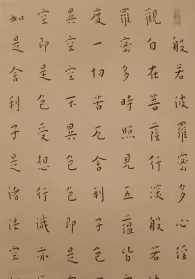 般若波羅蜜多心経
觀自在菩薩行深般若
羅蜜多時照見五蘊皆
度一切苦厄舍利子色
異空空不異色色即是
空即是色受想行識亦
如是舍利子是諸法空